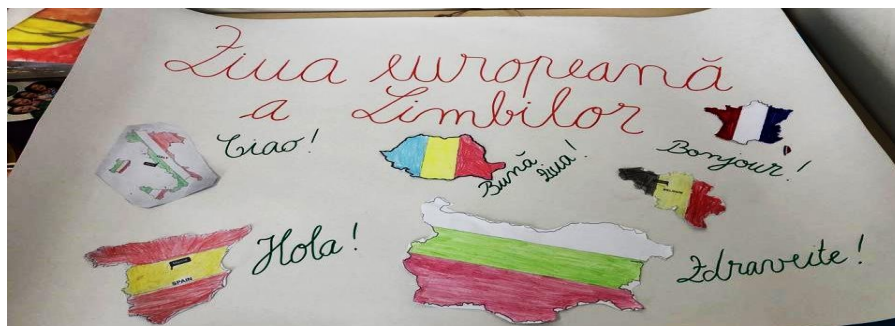 Ziua europeană
a Limbilor
Ciao!
Bună
ziua!
Bonjour!
Hola!
SPAIN
Zdraveite!